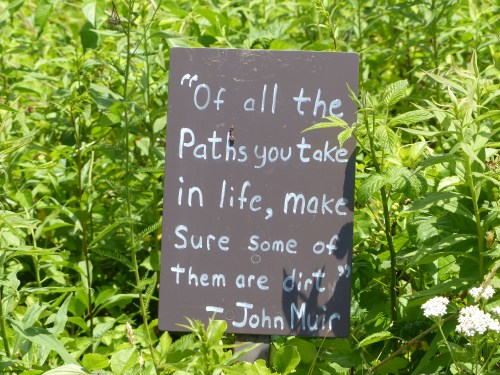 "Of all the
Paths you take
in life, make
Sure some of
them are dirt"
- John Muir